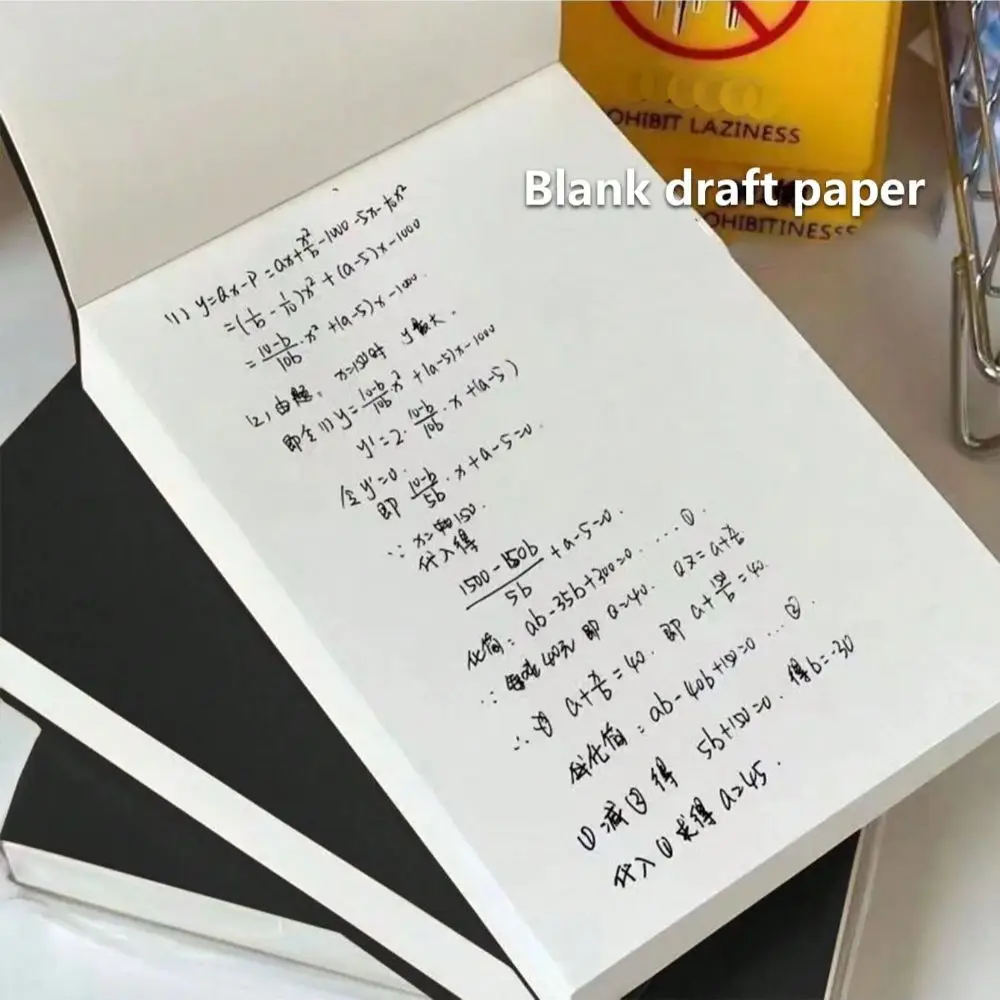 OHIBIT LAZINESS
Blank draft paper
OHIBITINESSS
(1) y=ax-P=ax+x²/b-1000-5x-1/10x²
=(1/b-1/10)x²+(a-5)x-1000
=10-b/10b·x²+(a-5)x-1000.
(2)由题, x=150时 y最大.
即令(1) y=10-b/10b x²+(a-5)x-1000
y'=2·10-b/10b·x+(a-5)
令y'=0.
即 10-b/5b·x+a-5=0.
∵ x=150.
代入得
1500-150b/5b+a-5=0.
化简: ab-35b+300=0.....①.
∵ 40元 即 a=40. a+x/b
∴ a+x/b=40. 即 a+150/b=40.
化简: ab-40b+150=0...②.
①减②得 5b+150=0. 得b=-30
代入①求得a=45.